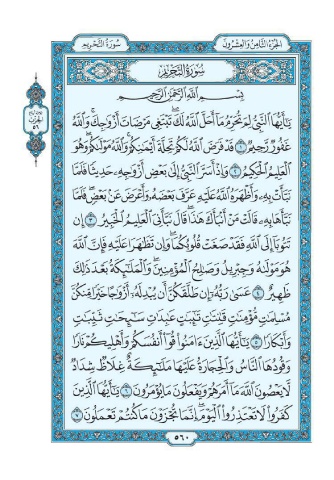 الجزء الثامن والعشرون
سورة التحريم
سورة التحريم
بسم الله الرحمن الرحيم
يَٰٓأَيُّهَا ٱلنَّبِيُّ لِمَ تُحَرِّمُ مَآ أَحَلَّ ٱللَّهُ لَكَ تَبْتَغِى مَرْضَاتَ أَزْوَٰجِكَ وَٱللَّهُ
غَفُورٌ رَّحِيمٌ ١ قَدْ فَرَضَ ٱللَّهُ لَكُمْ تَحِلَّةَ أَيْمَٰنِكُمْ وَٱللَّهُ مَوْلَىٰكُمْ وَهُوَ
ٱلْعَلِيمُ ٱلْحَكِيمُ ٢ وَإِذْ أَسَرَّ ٱلنَّبِيُّ إِلَىٰ بَعْضِ أَزْوَٰجِهِۦ حَدِيثًا فَلَمَّا
نَبَّأَتْ بِهِۦ وَأَظْهَرَهُ ٱللَّهُ عَلَيْهِ عَرَّفَ بَعْضَهُۥ وَأَعْرَضَ عَنۢ بَعْضٍ فَلَمَّا
نَبَّأَهَا بِهِۦ قَالَتْ مَنْ أَنۢبَأَكَ هَٰذَا قَالَ نَبَّأَنِىَ ٱلْعَلِيمُ ٱلْخَبِيرُ ٣ إِن
تَتُوبَآ إِلَى ٱللَّهِ فَقَدْ صَغَتْ قُلُوبُكُمَا وَإِن تَظَٰهَرَا عَلَيْهِ فَإِنَّ ٱللَّهَ
هُوَ مَوْلَىٰهُ وَجِبْرِيلُ وَصَٰلِحُ ٱلْمُؤْمِنِينَ وَٱلْمَلَٰٓئِكَةُ بَعْدَ ذَٰلِكَ
ظَهِيرٌ ٤ عَسَىٰ رَبُّهُۥٓ إِن طَلَّقَكُنَّ أَن يُبْدِلَهُۥٓ أَزْوَٰجًا خَيْرًا مِّنكُنَّ
مُسْلِمَٰتٍ مُّؤْمِنَٰتٍ قَٰنِتَٰتٍ تَٰٓئِبَٰتٍ عَٰبِدَٰتٍ سَٰٓئِحَٰتٍ ثَيِّبَٰتٍ
وَأَبْكَارًا ٥ يَٰٓأَيُّهَا ٱلَّذِينَ ءَامَنُوا۟ قُوٓا۟ أَنفُسَكُمْ وَأَهْلِيكُمْ نَارًا
وَقُودُهَا ٱلنَّاسُ وَٱلْحِجَارَةُ عَلَيْهَا مَلَٰٓئِكَةٌ غِلَاظٌ شِدَادٌ
لَّا يَعْصُونَ ٱللَّهَ مَآ أَمَرَهُمْ وَيَفْعَلُونَ مَا يُؤْمَرُونَ ٦ يَٰٓأَيُّهَا ٱلَّذِينَ
كَفَرُوا۟ لَا تَعْتَذِرُوا۟ ٱلْيَوْمَ إِنَّمَا تُجْزَوْنَ مَا كُنتُمْ تَعْمَلُونَ ٧
٥٦٠